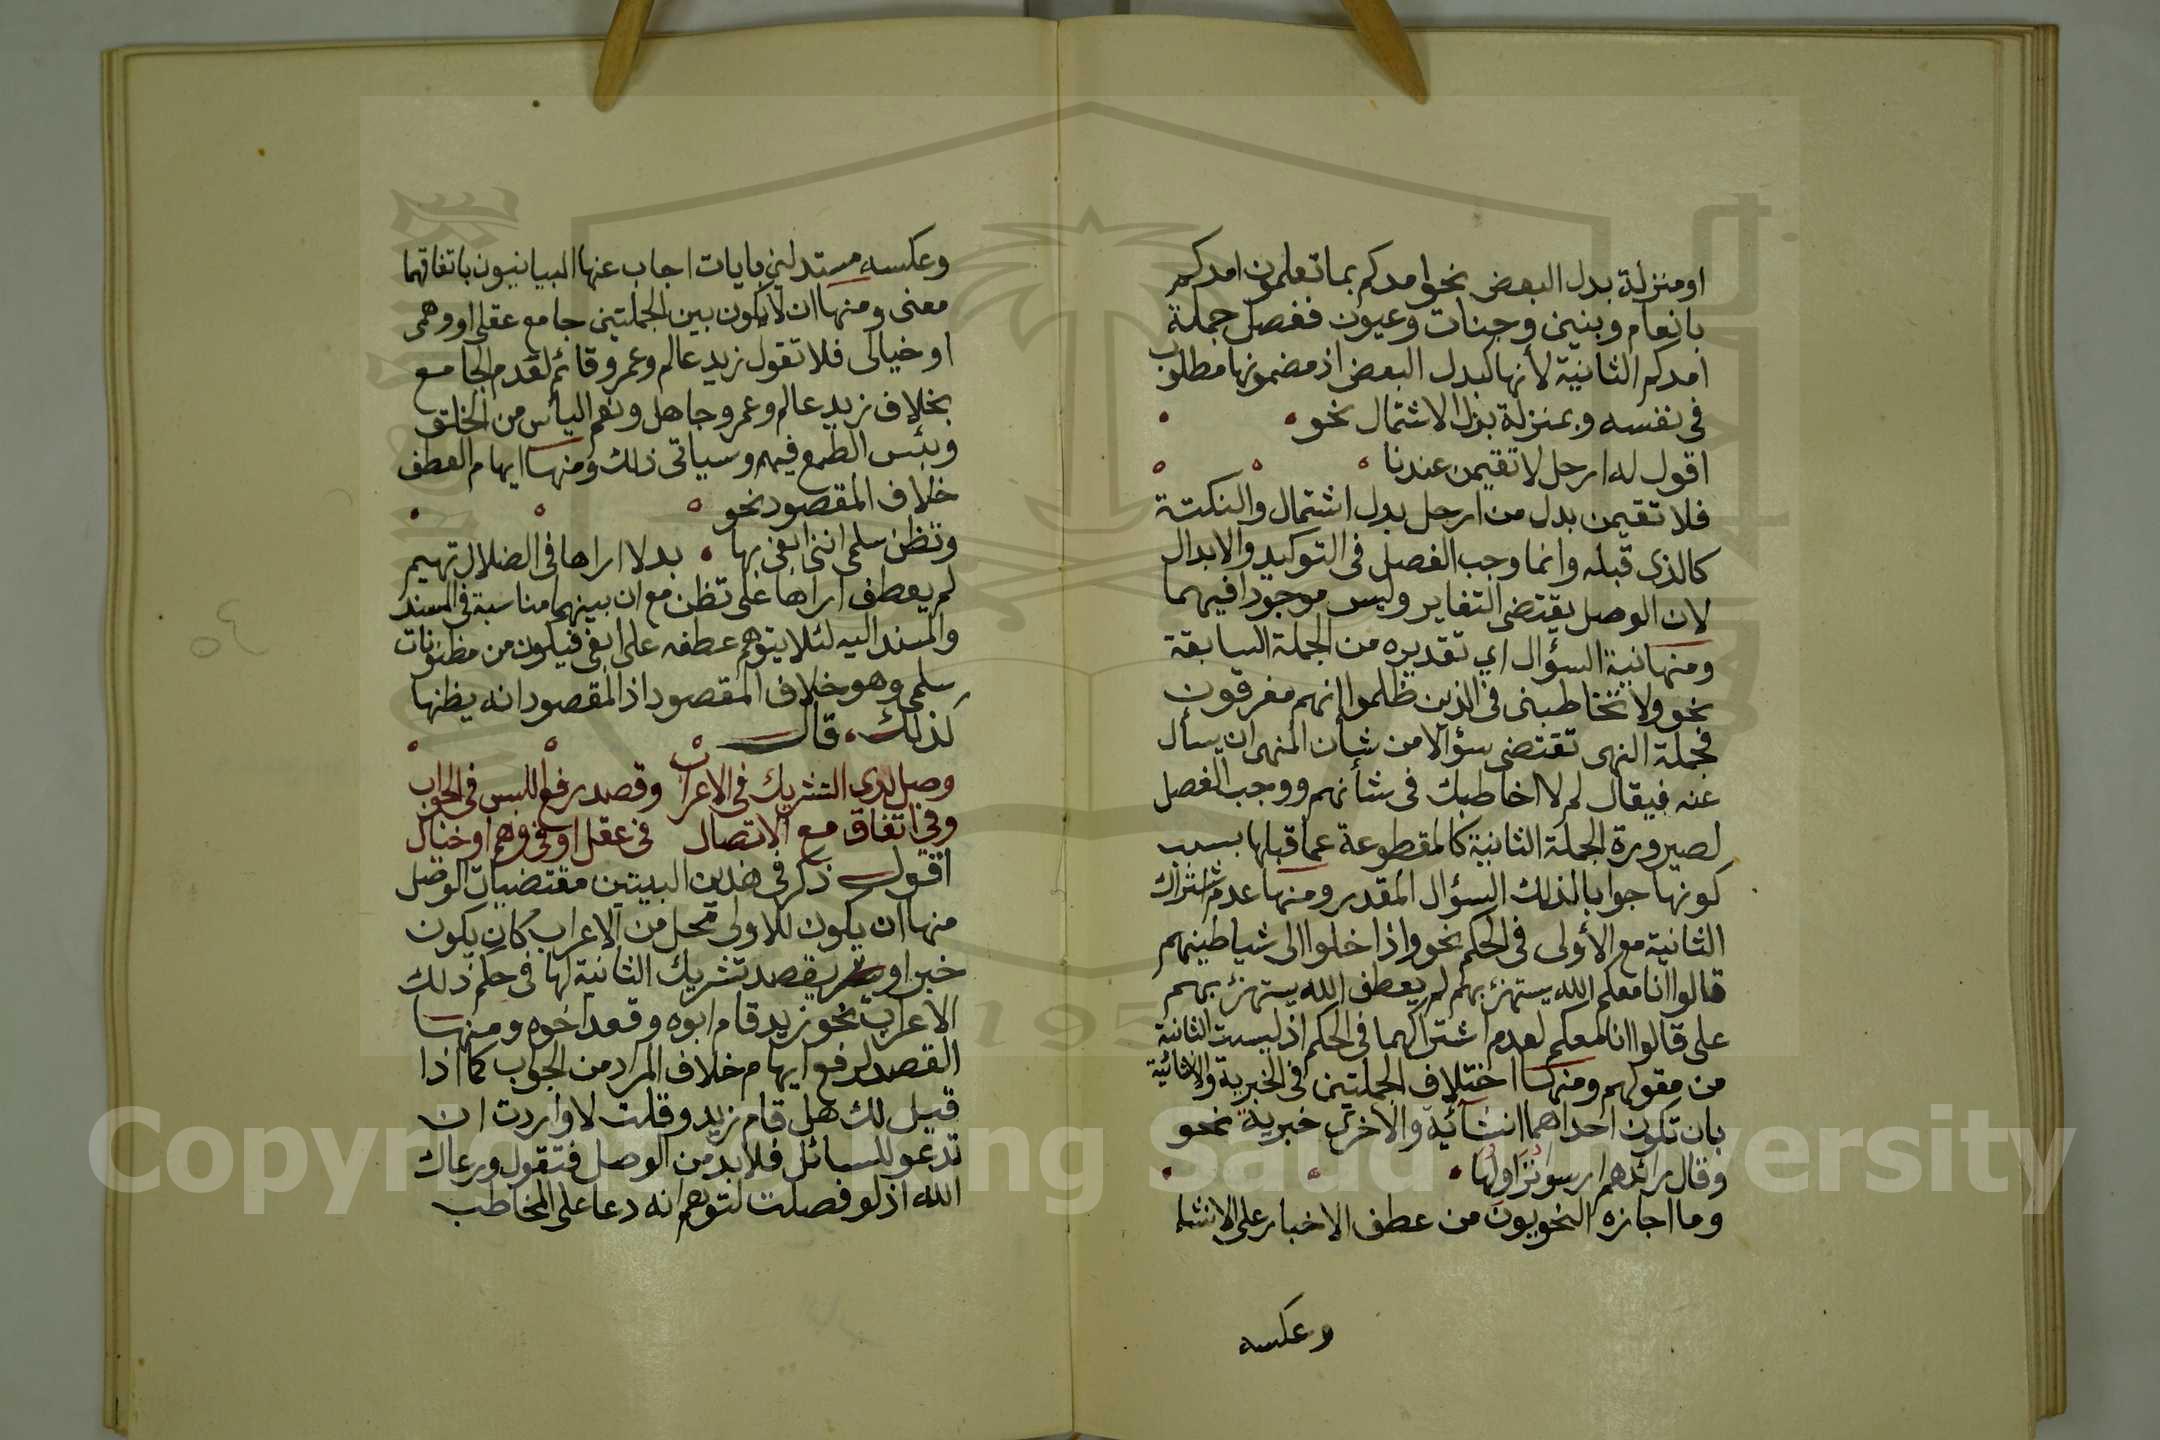 او منزلة بدل البعض نحو امدكم بما تعلمون امدكم
بانعام وبنين وجنات وعيون ففصل جملة
امدكم الثانية لأنها كبدل البعض اذ مضمونها مطلوب
فى نفسه وبمنزلة بدل الاشتمال نحو
اقول له ارحل لا تقيمن عندنا
فلا تقيمن بدل من ارحل بدل اشتمال والنكتة
كالذى قبله وانما وجب الفصل فى التوكيد والابدال
لان الوصل يقتضى التغاير وليس موجودا فيهما
ومنها نية السؤال اي تقديره من الجملة السابقة
نحو ولا تخاطبنى فى الذين ظلموا انهم مغرقون
فجملة النهى تقتضى سؤالا من شأن المنهى ان يسأل
عنه فيقال لم لا اخاطبك فى شأنهم ووجب الفصل
لصيرورة الجملة الثانية كالمقطوعة عما قبلها بسبب
كونها جوابا لذلك السؤال المقدر ومنها عدم اشتراك
الثانية مع الأولى فى الحكم نحو واذا خلوا الى شياطينهم
قالوا انا معكم الله يستهزئ بهم لم يعطف الله يستهزئ بهم
على قالوا انا معكم لعدم اشتراكهما فى الحكم اذ ليست الثانية
من مقولهم ومنها اختلاف الجملتين فى الخبرية والانشائية
بان تكون احداهما انشائية والاخرى خبرية نحو
وقال رائدهم ارسوا نزاولها
وما اجازه النحويون من عطف الاخبار على الانشاء
وعكسه
وعكسه مستدلين بايات اجاب عنها البيانيون باتفاقهما
معنى ومنها ان لا يكون بين الجملتين جامع عقلى او وهمى
او خيالى فلا تقول زيد عالم وعمرو قائم لعدم الجامع
بخلاف زيد عالم وعمرو جاهل ونعم اليأس من الخلق
وبئس الطمع فيهم وسياتى ذلك ومنها ايهام العطف
خلاف المقصود نحو
وتظن سلمى اننى ابغى بها بدلا اراها فى الضلال تهيم
لم يعطف اراها على تظن مع ان بينهما مناسبة فى المسند
والمسند اليه لئلا يتوهم عطفه على ابغى فيكون من مظنونات
سلمى وهو خلاف المقصود اذ المقصود انه يظنها
كذلك قال
وصل لدى التشريك فى الاعراب وقصد رفع اللبس فى الجواب
وفى اتفاق مع الاتصال فى عقل او فى وهم او خيال
اقول ذكر فى هذين البيتين مقتضيات الوصل
منها ان يكون للاولى محل من الاعراب كان يكون
خبرا و يقصد تشريك الثانية لها فى حكم ذلك
الاعراب نحو زيد قام ابوه وقعد اخوه ومنها
القصد لرفع ايهام خلاف المراد من الجواب كما اذا
قيل لك هل قام زيد وقلت لا واردت ان
تدعو للسائل فلا بد من الوصل فتقول ورعاك
الله اذ لو فصلت لتوهم انه دعا على المخاطب
Copyright © King Saud University
195